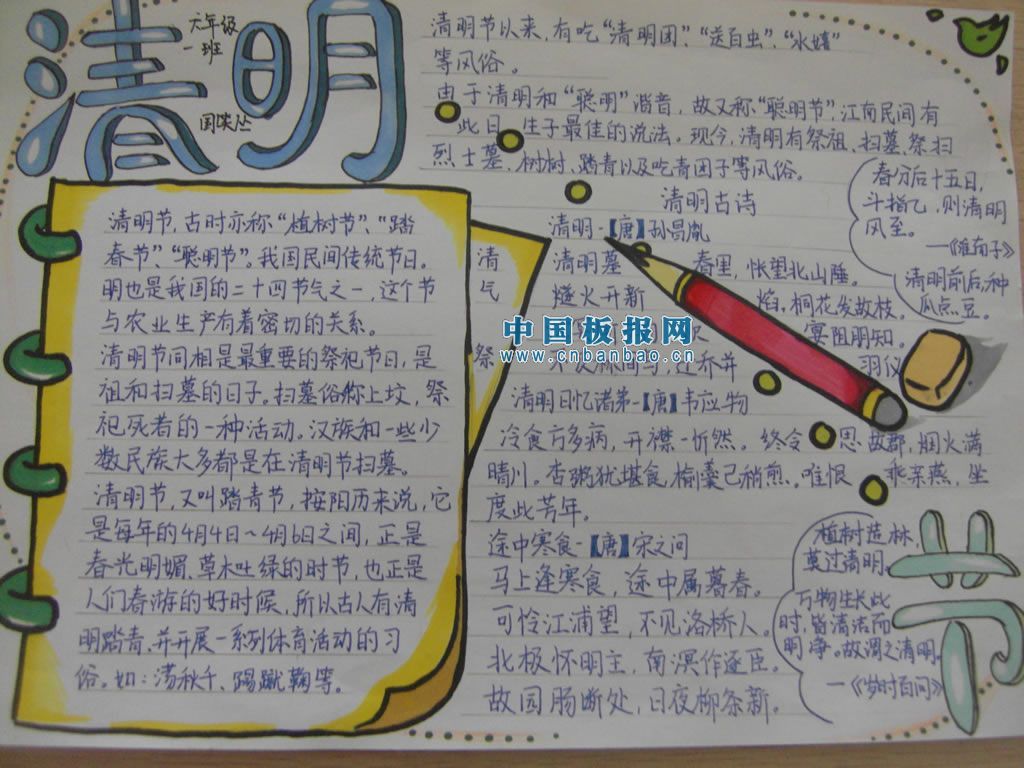 清明
六年级
一班
清明节以来,有吃“清明团”、“送百虫”、“水嬉”
等风俗。
由于清明和“聪明”谐音,故又称“聪明节”,江南民间有
此日生子最佳的说法。现今,清明有祭祖、扫墓、祭扫
烈士墓、树树、踏青以及吃青团子等风俗。
清明节,古时亦称“植树节”、“踏
春节”、“聪明节”。我国民间传统节日。
明也是我国的二十四节气之一,这个节
与农业生产有着密切的关系。
清明节同相是最重要的祭祀节日,是
祖和扫墓的日子。扫墓俗称上坟,祭
祀死者的一种活动。汉族和一些少
数民族大多都是在清明节扫墓。
清明节,又叫踏青节,按阳历来说,它
是每年的4月4日~4月6日之间,正是
春光明媚、草木吐绿的时节,也正是
人们春游的好时候,所以古人有清
明踏青,并开展一系列体育活动的习
俗。如:荡秋千、踢蹴鞠等。
清
气
祭
清明古诗
清明-【唐】孙昌胤
清明暮春里,怅望北山陲。
燧火开新焰,桐花发故枝。
宴阻朋知。
羽仪
清明日忆诸弟-【唐】韦应物
冷食方多病,开襟一忻然。终令思故郡,烟火满
晴川。杏粥犹堪食,榆羹已稍煎。唯恨乖亲燕,坐
度此芳年。
途中寒食-【唐】宋之问
马上逢寒食,途中属暮春。
可怜江浦望,不见洛桥人。
北极怀明主,南溟作逐臣。
故园肠断处,日夜柳条新。
春分后十五日,
斗指乙,则清明
风至。
—《淮南子》
清明前后,种
瓜点豆。
植树造林,
莫过清明。
万物生长此
时,皆清洁而
明净。故谓之清明。
—《岁时百问》
节
中国板报网
www.cnbanbao.cn